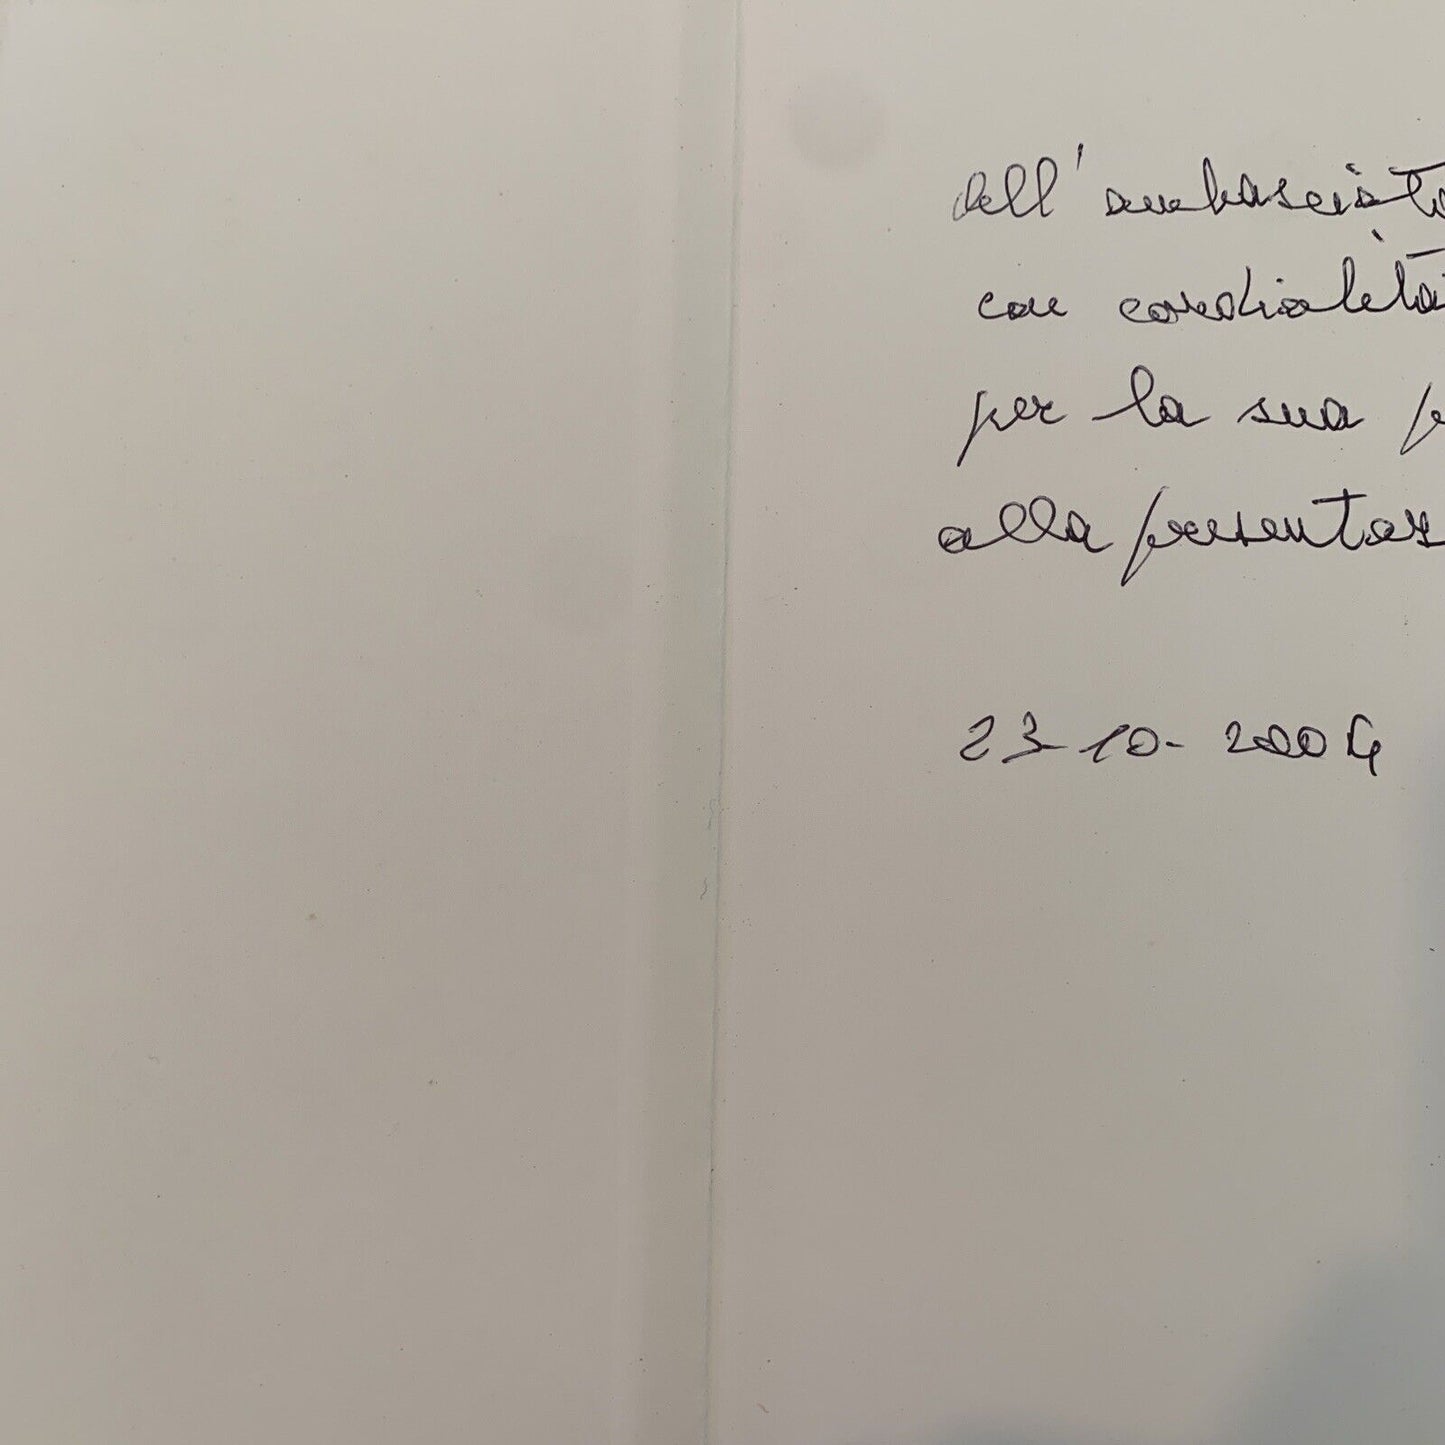 all' ambasciato
con cordialità
per la sua p
alla presentaz
23-10-2004